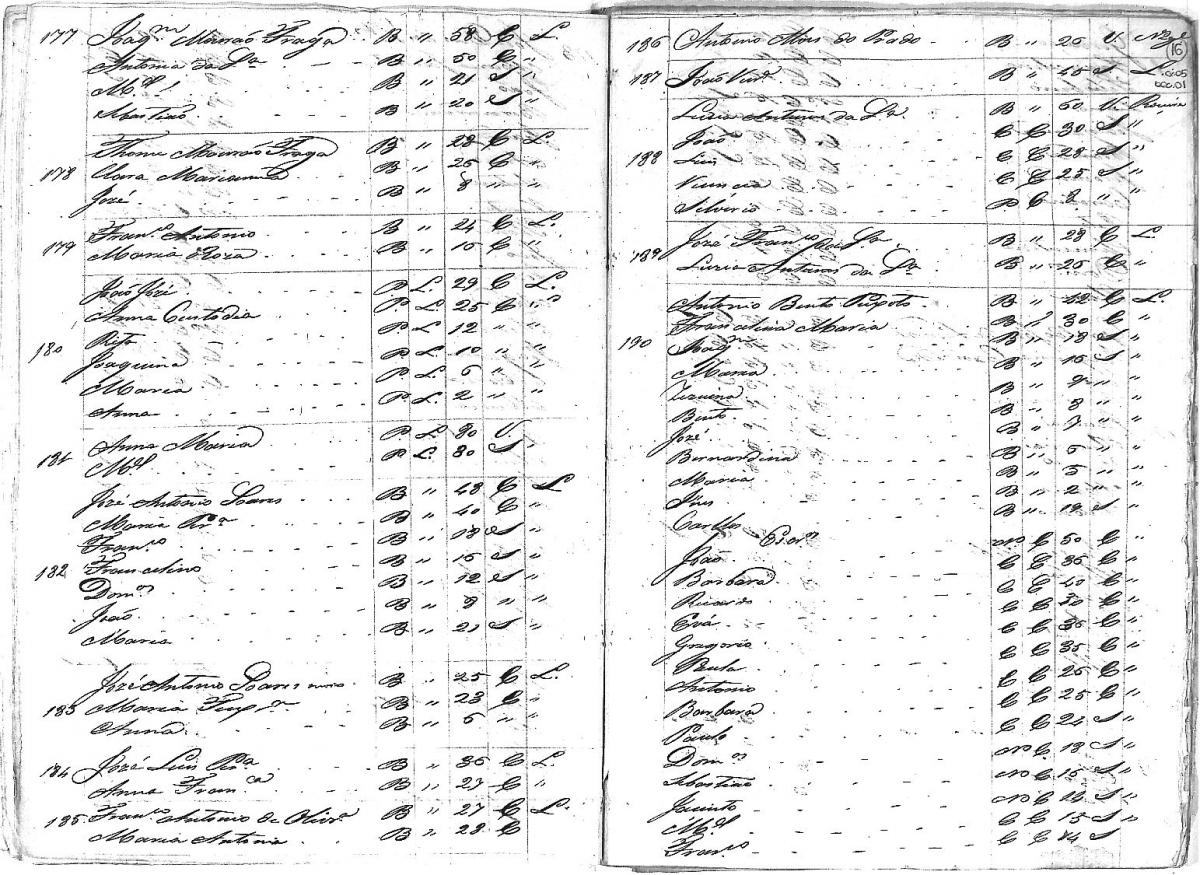 177 Joaqm Mourão Fraga B " 58 C L.
Antonia da Sa B " 50 C "
Mel B " 21 S "
Martino B " 20 S "
Thome Mourão Fraga B " 28 C L.
178 Clara B " 26 C "
José B " 8 " "
Franco Antonio B " 24 C L.
179 Maria Roza B " 15 C "
João José P L. 29 C L.
Anna Custodia P. L. 25 C "
Rita P L. 12 " "
180 Joaquina P L. 10 " "
Maria P L. 6 " "
Anna P L. 2 " "
Anna Maria P L. 80 V.
181 Mel P L. 30 S "
José Antonio Soares B " 48 C L
Maria Pra B " 40 C "
Franco B " 18 S "
182 Francelino B " 15 S "
Domos B " 12 S "
João B " 9 " "
Maria B " 21 S "
José Antonio Soares B " 25 C L.
183 Maria B " 23 C "
Anna B " 5 " "
184 José Luis Pra B " 36 C L.
Anna Franca B " 27 C "
185 Franco Antonio de Olivra B " 27 C L.
Maria Antonia B " 28 C
186 Antonio Alves do Prado B " 26 V.
16
187 João B " 45 S L.
Luzia Antunes da Sa B " 50 V.
João C C 30 S "
188 Luis C C 28 S "
C C 25 S "
Silverio P C 8 " "
José Franco da Sa B " 28 C L.
189 Luzia Antunes da Sa B " 26 C "
Antonio Bento Peixoto B " 42 C L.
Francelina Maria B " 30 C "
190 Joaqm B " 18 S "
Maria B " 16 S "
B " 9 " "
Bento B " 8 " "
José B " 7 " "
Bernardina B " 6 " "
Maria B " 5 " "
Ines B " 2 " "
Carllos B " 19 S "
Escros
João C 50 C "
Barbara C C 36 C "
Ricardo C C 40 C "
Evá C C 30 C "
Gregorio C C 36 C "
Paula C C 35 C "
Antonio C C 26 C "
Barbara C C 25 C "
Paulo C C 24 S "
Domos C 18 S "
Martino C 16 S "
Jacinto C 14 S "
Mel C C 15 S "
Franco C C 14 S